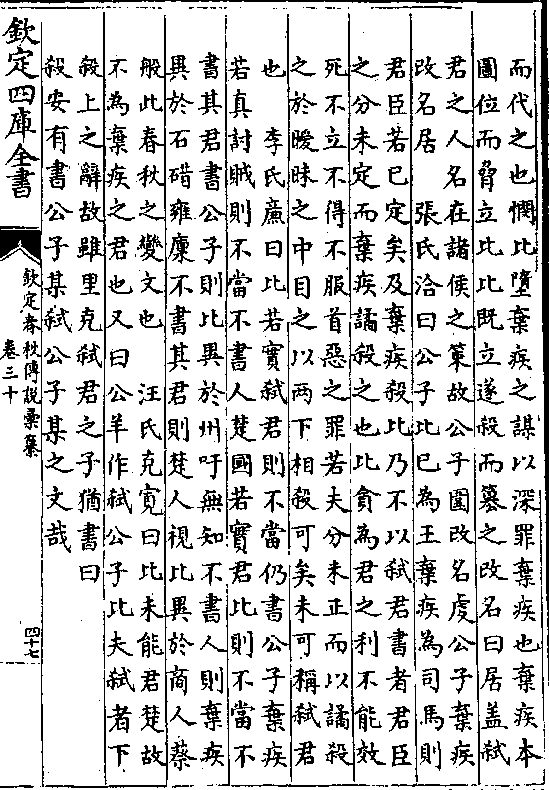 而代之也憫比墮棄疾之謀以深罪棄疾也棄疾本
圖位而脅立比比既立遂殺而簒之改名曰居盖弑
君之人名在諸侯之策故公子圍改名虔公子棄疾
改名居　張氏洽曰公子比已為王棄疾為司馬則
君臣若已定矣及棄疾殺比乃不以弑君書者君臣
之分未定而棄疾譎殺之也比貪為君之利不能效
死不立不得不服首惡之罪若夫分未正而以譎殺
之於曖昧之中目之以兩下相殺可矣未可稱弑君
也　李氏廉曰比若實弑君則不當仍書公子棄疾
若真討賊則不當不書人楚國若實君比則不當不
書其君書公子則比異於州吁無知不書人則棄疾
異於石碏雍廩不書其君則楚人視比異於商人蔡
般此春秋之變文也　汪氏克寛曰比未能君楚故
不為棄疾之君也又曰公羊作弑公子比夫弑者下
殺上之辭故雖里克弑君之子猶書曰
殺安有書公子某弑公子某之文哉
欽定四庫全書
欽定春秋傳說彙纂
卷三十
四十七